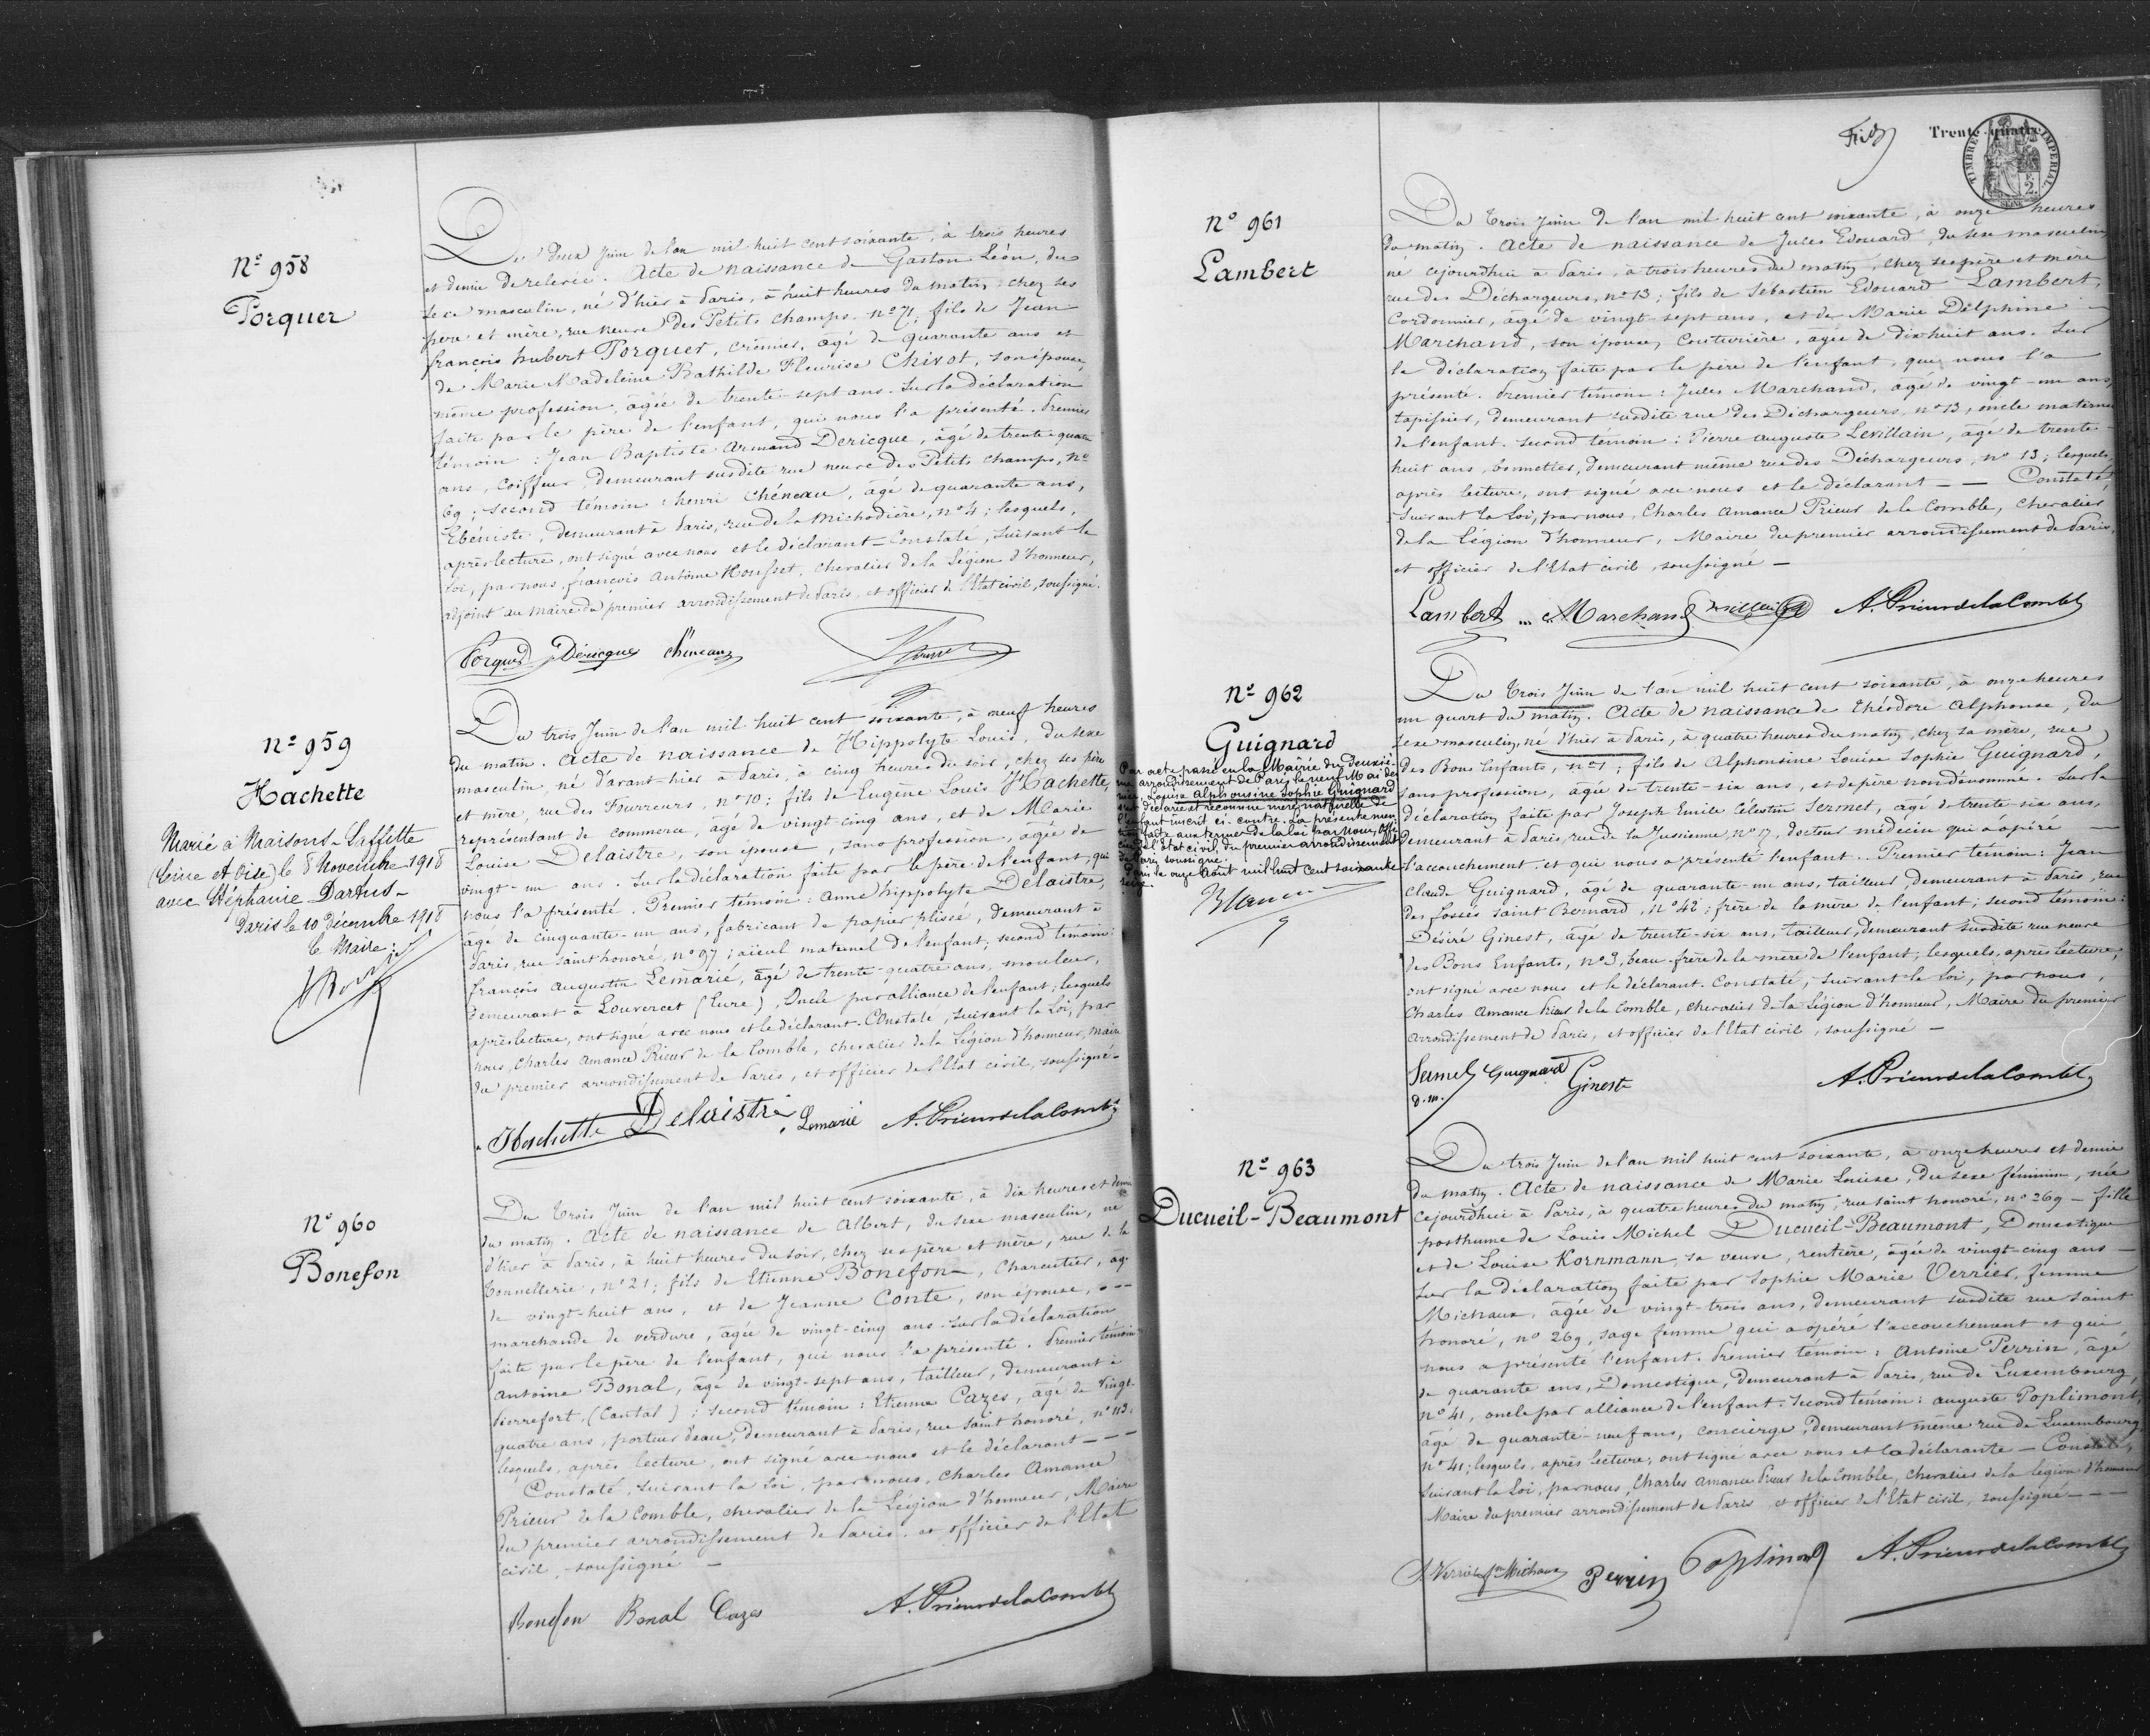 N° 958
Porquer
Du deux Juin de l'an mil huit cent soixante, à trois heures
et demie de relevée. Acte de naissance de Gaston Léon, du
sexe masculin, né d'hier à Paris, à huit heures du matin, chez ses
père et mère, rue neuve des Petits champs, n° 71; fils de Jean
françois hubert Porquer, crêmier, agé de quarante ans et
de Marie Madeleine Bathilde Fleurise Chivot, son épouse,
même profession, agée de trente-sept ans. Sur la déclaration
faite par le père de l'enfant, qui nous l'a présenté. Premier
témoin: Jean Baptiste Armand Dericque, âgé de trente-quatre
ans, Coiffeur, demeurant susdite rue neuve des Petits champs, n°
69; second témoin: henri Chéneau, âgé de quarante ans,
Ebéniste, demeurant à Paris, rue de la Michodière, n° 4; lesquels,
après lecture, ont signé avec nous et le déclarant - Constaté, suivant la
loi, par nous, françois Antoine Housset, chevalier de la Légion d'honneur,
adjoint au maire du premier arrondissement de Paris, et officier de l'Etat civil, soussigné.
Porquer Déricque Chéneau
N° 959
Hachette
Marié à Maisons-Laffitte
(Seine et Oise) le 8 Novembre 1918
avec Stéphanie Dartus -
Paris le 10 décembre 1918
le Maire:
Du trois Juin de l'an mil huit cent soixante, à neuf heures
du matin. Acte de naissance de Hippolyte Louis, du sexe
masculin, né d'avant-hier à Paris, à cinq heures du soir, chez ses père
et mère, rue des Fourreurs, n° 10; fils de Eugène Louis Hachette,
représentant de commerce, âgé de vingt-cinq ans, et de Marie
Louise Delaistre, son épouse, sans profession, agée de
vingt-un ans. Sur la déclaration faite par le père de l'enfant, qui
nous l'a présenté. Premier témoin: Anne hippolyte Delaistre,
âgé de cinquante-un ans, fabricant de papier plissé, demeurant à
Paris, rue saint honoré, n° 97, aieul maternel de l'enfant; second témoin:
françois augustin Lemarié, âgé de trente-quatre ans, mouleur,
demeurant à Louvercet (Eure), Oncle par alliance de l'enfant; lesquels
après lecture, ont signé avec nous et le déclarant. Constaté, suivant la Loi, par
nous, Charles Amance Prieur de la Comble, chevalier de la Légion d'honneur, Maire
du premier arrondissement de Paris, et officier de l'Etat civil, soussigné -
Hachette Delaistre Lemarié A. Prieur de la Comble
N° 960
Bonefon
Du trois Juin de l'an mil huit cent soixante, à dix heures et demie
du matin. Acte de naissance de Albert, du sexe masculin, né
d'hier à Paris, à huit heures du soir, chez ses père et mère, rue de la
Tonnellerie, n° 21; fils de Etienne Bonefon, Charcutier, agé
de vingt-huit ans, et de Jeanne Conte, son épouse, - - -
marchande de verdure, âgée de vingt-cinq ans. Sur la déclaration
faite par le père de l'enfant, qui nous l'a présenté. Premier témoin
Antoine Bonal, âgé de vingt-sept ans, tailleur, demeurant à
Pierrefort, (Cantal); second témoin: Etienne Cazes, âgé de vingt-
quatre ans, porteur d'eau, demeurant à Paris, rue saint honoré, n° 113;
lesquels, après lecture, ont signé avec nous et le déclarant - - -
Constaté, suivant la Loi, par nous, Charles Amance
Prieur de la Comble, chevalier de la Légion d'honneur, Maire
du premier arrondissement de Paris, et officier de l'Etat
civil, soussigné -
Bonefon Bonal Cazes A. Prieur de la Comble
Trente-quatre
TIMBRE IMPERIAL
2
SEINE
N° 961
Lambert
Du trois Juin de l'an mil huit cent soixante, à onze heures
du matin. Acte de naissance de Jules Edouard, du sexe masculin,
né cejourdhui à Paris, à trois heures du matin, chez ses père et mère
rue des Déchargeurs, n° 13; fils de Sébastien Edouard Lambert,
Cordonnier, âgé de vingt-sept ans, et de Marie Delphine
Marchand, son épouse, Couturière, agée de dix huit ans. Sur
la déclaration faite par le père de l'enfant, qui nous l'a
présenté. Premier témoin: Jules Marchand, agé de vingt-un ans,
tapissier, demeurant susdite rue des Déchargeurs, n° 13, oncle maternel
de l'enfant. Second témoin: Pierre auguste Levillain, âgé de trente-
huit ans, bonnetier, demeurant même rue des Déchargeurs, n° 13; lesquels,
après lecture, ont signé avec nous et le déclarant - - Constaté,
Suivant la Loi, par nous, Charles Amance Prieur de la Comble, chevalier
de la Légion d'honneur, Maire du premier arrondissement de Paris,
et officier de l'Etat civil, soussigné -
Lambert Marchand A. Prieur de la Comble
N° 962
Guignard
Par acte passé en la Mairie du deuxiè-
me arrondissement de Paris, le neuf Mai der-
nier, Louise Alphonsine Sophie Guignard
s'est déclarée et reconnue mère naturelle de
l'enfant inscrit ci-contre. La présente men-
tion faite aux termes de la loi par Nous, offi-
cier de l'état civil du premier arrondissement
de Paris, soussigné.
Paris, le onze Août mil huit cent soixante
seize.
Du trois Juin de l'an mil huit cent soixante, à onze heures
un quart du matin. Acte de naissance de théodore Alphonse, du
sexe masculin, né d'hier à Paris, à quatre heures du matin, chez sa mère, rue
des Bons Enfants, n° 1; fils de Alphonsine Louise Sophie Guignard,
sans profession, agée de trente-six ans, et de père non dénommé. Sur la
déclaration faite par Joseph Emile Célestin Sermet, agé de trente-six ans,
demeurant à Paris, rue de la Jussienne n° 17, docteur médecin qui a opéré
l'accouchement et qui nous a présenté l'enfant. Premier témoin: Jean
Claude Guignard, âgé de quarante-un ans, tailleur, demeurant à Paris, rue
des fossés saint Bernard, n° 42; frère de la mère de l'enfant; second témoin:
Désiré Ginest, âgé de trente-six ans, tailleur, demeurant susdite rue neuve
des Bons Enfants, n° 3, beau-frère de la mère de l'enfant; lesquels, après lecture,
ont signé avec nous et le déclarant. Constaté, suivant la Loi, par nous,
Charles Amance Prieur de la Comble, chevalier de la Légion d'honneur, Maire du premier
arrondissement de Paris, et officier de l'Etat civil, soussigné -
Sermet Guignard Ginest A. Prieur de la Comble
d.m.
N° 963
Ducueil-Beaumont
Du trois Juin de l'an mil huit cent soixante, à onze heures et demie
du matin. Acte de naissance de Marie Louise, du sexe féminin, née
Cejourdhui à Paris, à quatre heures du matin, rue saint honoré, n° 269 - fille
posthume de Louis Michel Ducueil-Beaumont, Domestique
et de Louise Kornmann, sa veuve, rentière, âgée de vingt-cinq ans -
sur la déclaration faite par Sophie Marie Verrier, femme
Michaux, âgée de vingt-trois ans, demeurant susdite rue saint
honoré, n° 269, sage femme qui a opéré l'accouchement et qui
nous a présenté l'enfant. Premier témoin: Antoine Perrin, âgé
de quarante ans, Domestique, demeurant à Paris, rue de Luxembourg,
n° 41, oncle par alliance de l'enfant. Second témoin: auguste Poplimont,
âgé de quarante-neuf ans, concierge, demeurant même rue de Luxembourg
n° 41; lesquels, après lecture, ont signé avec nous et la déclarante - Constaté,
suivant la Loi, par nous, Charles Amance Prieur de la Comble, chevalier de la légion d'honneur
Maire du premier arrondissement de Paris, et officier de l'Etat civil, soussigné - - -
S Verrier fe Michaux Perrin Poplimont A. Prieur de la Comble